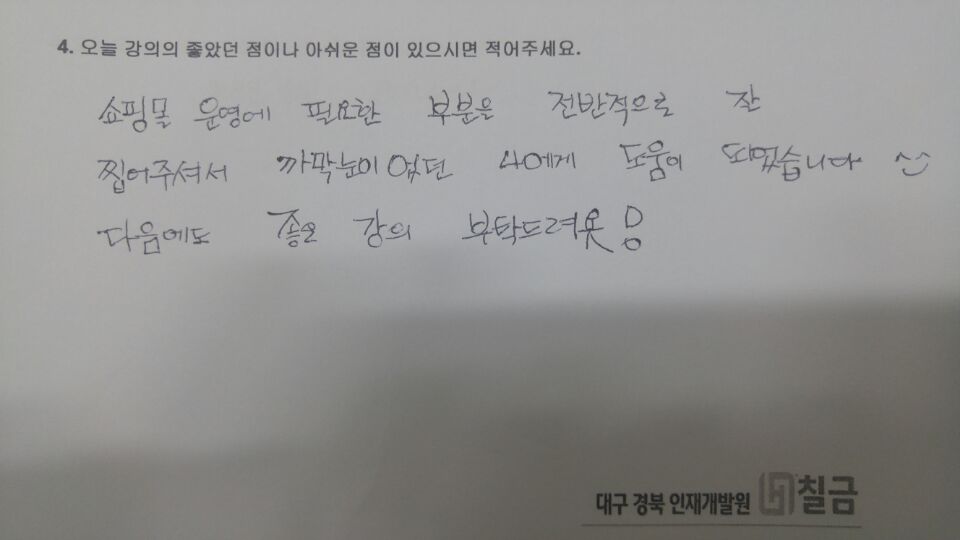 4. 오늘 강의의 좋았던 점이나 아쉬운 점이 있으시면 적어주세요.
쇼핑몰 운영에 필요한 부분을 전반적으로 잘
찝어주셔서 까막눈이였던 나에게 도움이 되었습니다 ^^
다음에도 좋은 강의 부탁드려욧!
대구 경북 인재개발원 칠금